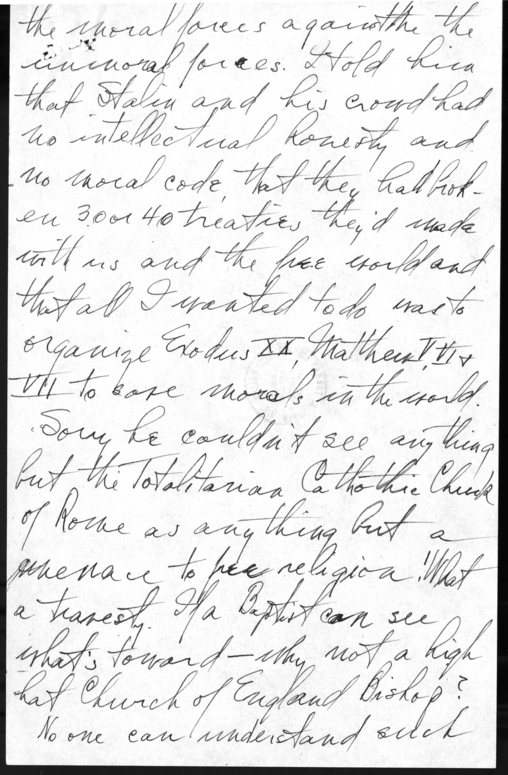 the moral forces against the the
unmoral forces. I told him
that Stalin and his crowd had
no intellectual honesty and
no moral code, that they had brok-
en 30 or 40 treaties they'd made
with us and the free world and
that all I wanted to do was to
organize Exodus XX, Matthew V, VI &
VII to save morals in the world.
Sorry he couldn't see anything
but the Totalitarian Cathothic Church
of Rome as anything but a
menace to free religion! What
a travesty. If a Baptist can see
what's toward—why not a high
hat Church of England Bishop?
No one can understand such